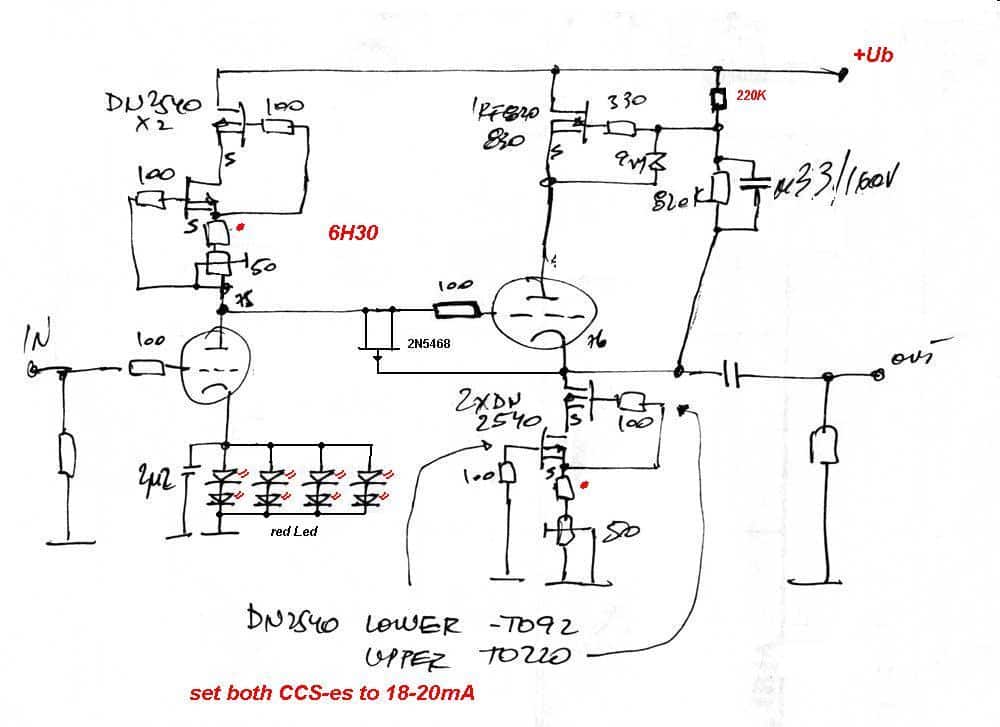 +Ub
DN2540
X2
100
IRF820
830
330
220K
S
S
9V1
100
820K
0.33/160V
S
6H30
50
75
100
IN
100
2N5468
76
OUT
2XDN
2540
S
100
100
S
2µ2
500
red Led
DN2540 LOWER -TO92
UPPER TO220
set both CCS-es to 18-20mA